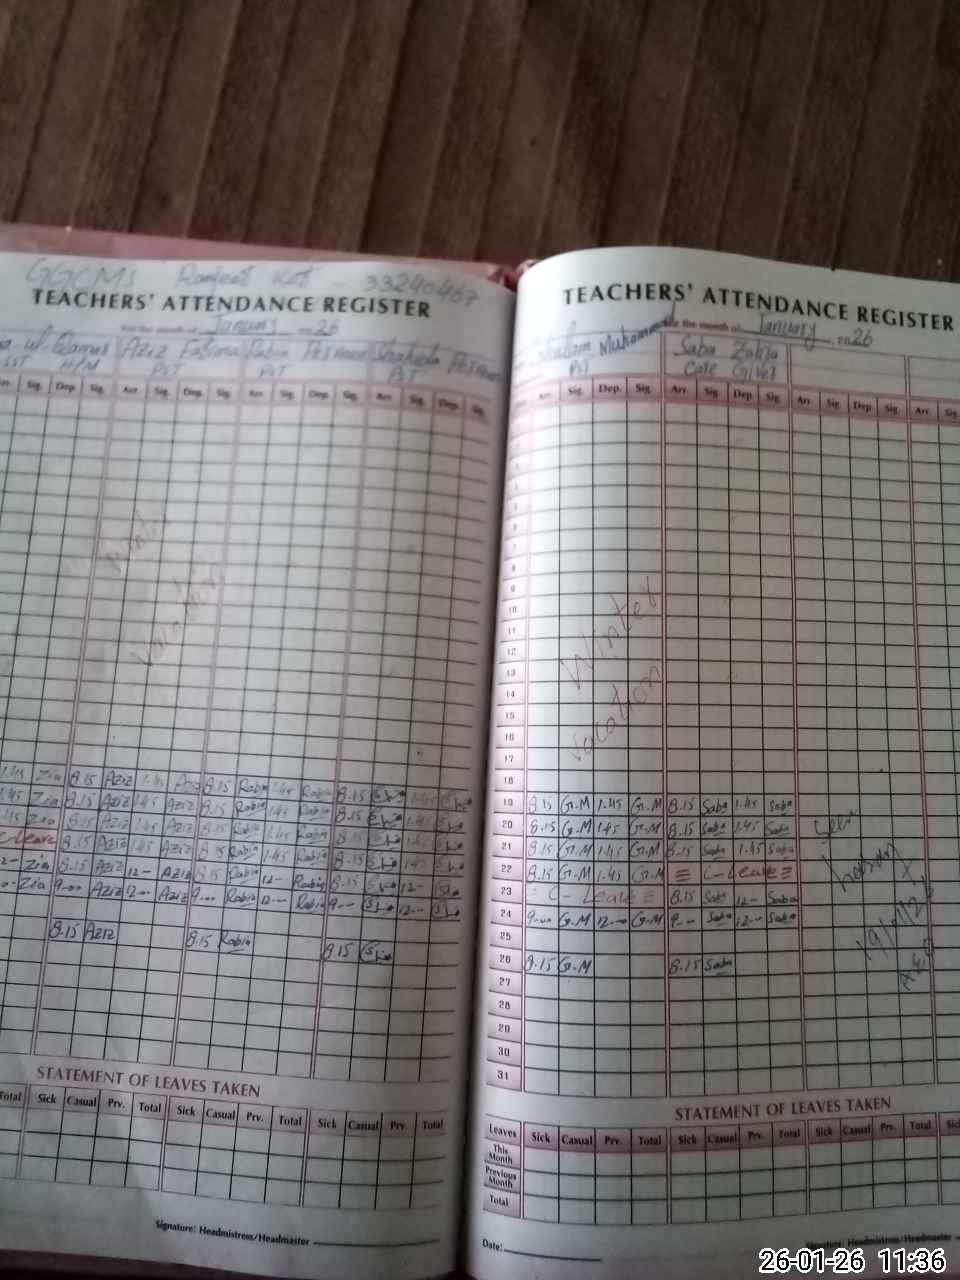 GGCMS Ranjeet Kot - 33240467
TEACHERS' ATTENDANCE REGISTER
For the month of January 2026
Aziz Fatima Rabia Perveen Shahida Perveen
SST H/M PST PST PST
Sig. Dep. Sig. Arr. Sig. Dep. Sig. Arr. Sig. Dep. Sig. Arr. Sig. Dep. Sig.
Winter
vacation
1.45 Zia 8.15 Aziz 1.45 Aziz 8.15 Rabia 1.45 Rabia 8.15 1.45
1.45 Zia 8.15 Aziz 1.45 Aziz 8.15 Rabia 1.45 Rabia 8.15 1.45
1.45 Zia 8.15 Aziz 1.45 Aziz 8.15 Rabia 1.45 Rabia 8.15 1.45
Leave 8.15 Aziz 1.45 Aziz 8.15 Rabia 1.45 Rabia 8.15 1.45
12-- Zia 8.15 Aziz 12-- Aziz 8.15 Rabia 12-- Rabia 8.15 12--
Zia 9-00 Aziz 12-- Aziz 9-- Rabia 12-- Rabia 9-- 12--
8.15 Aziz 8.15 Rabia 8.15
STATEMENT OF LEAVES TAKEN
Total Sick Casual Prv. Total Sick Casual Prv. Total Sick Casual Prv. Total
Signature: Headmistress/Headmaster
TEACHERS' ATTENDANCE REGISTER
For the month of January 2026
Muhammad Saba Zahra
PST Care Giver
Arr. Sig. Dep. Sig. Arr. Sig. Dep. Sig. Arr. Sig. Dep. Sig. Arr. Sig.
6
7
8
9
10
11
12
13
14
15
16
17
18
Winter
vacation
19 8.15 G.M 1.45 G.M 8.15 Saba 1.45 Saba
20 8.15 G.M 1.45 G.M 8.15 Saba 1.45 Saba
21 8.15 G.M 1.45 G.M 8.15 Saba 1.45 Saba
22 8.15 G.M 1.45 G.M = C-Leave =
23 = C-Leave = 8.15 Saba 12-- Saba
24 9-00 G.M 12-- G.M 9-- Saba 12-- Saba
25
26 8.15 G.M 8.15 Saba
27
28
29
30
31
AEO
STATEMENT OF LEAVES TAKEN
Leaves Sick Casual Prv. Total Sick Casual Prv. Total Sick Casual Prv. Total
This Month
Previous Month
Total
Date:
Signature: Headmistress/Headmaster
26-01-26 11:36